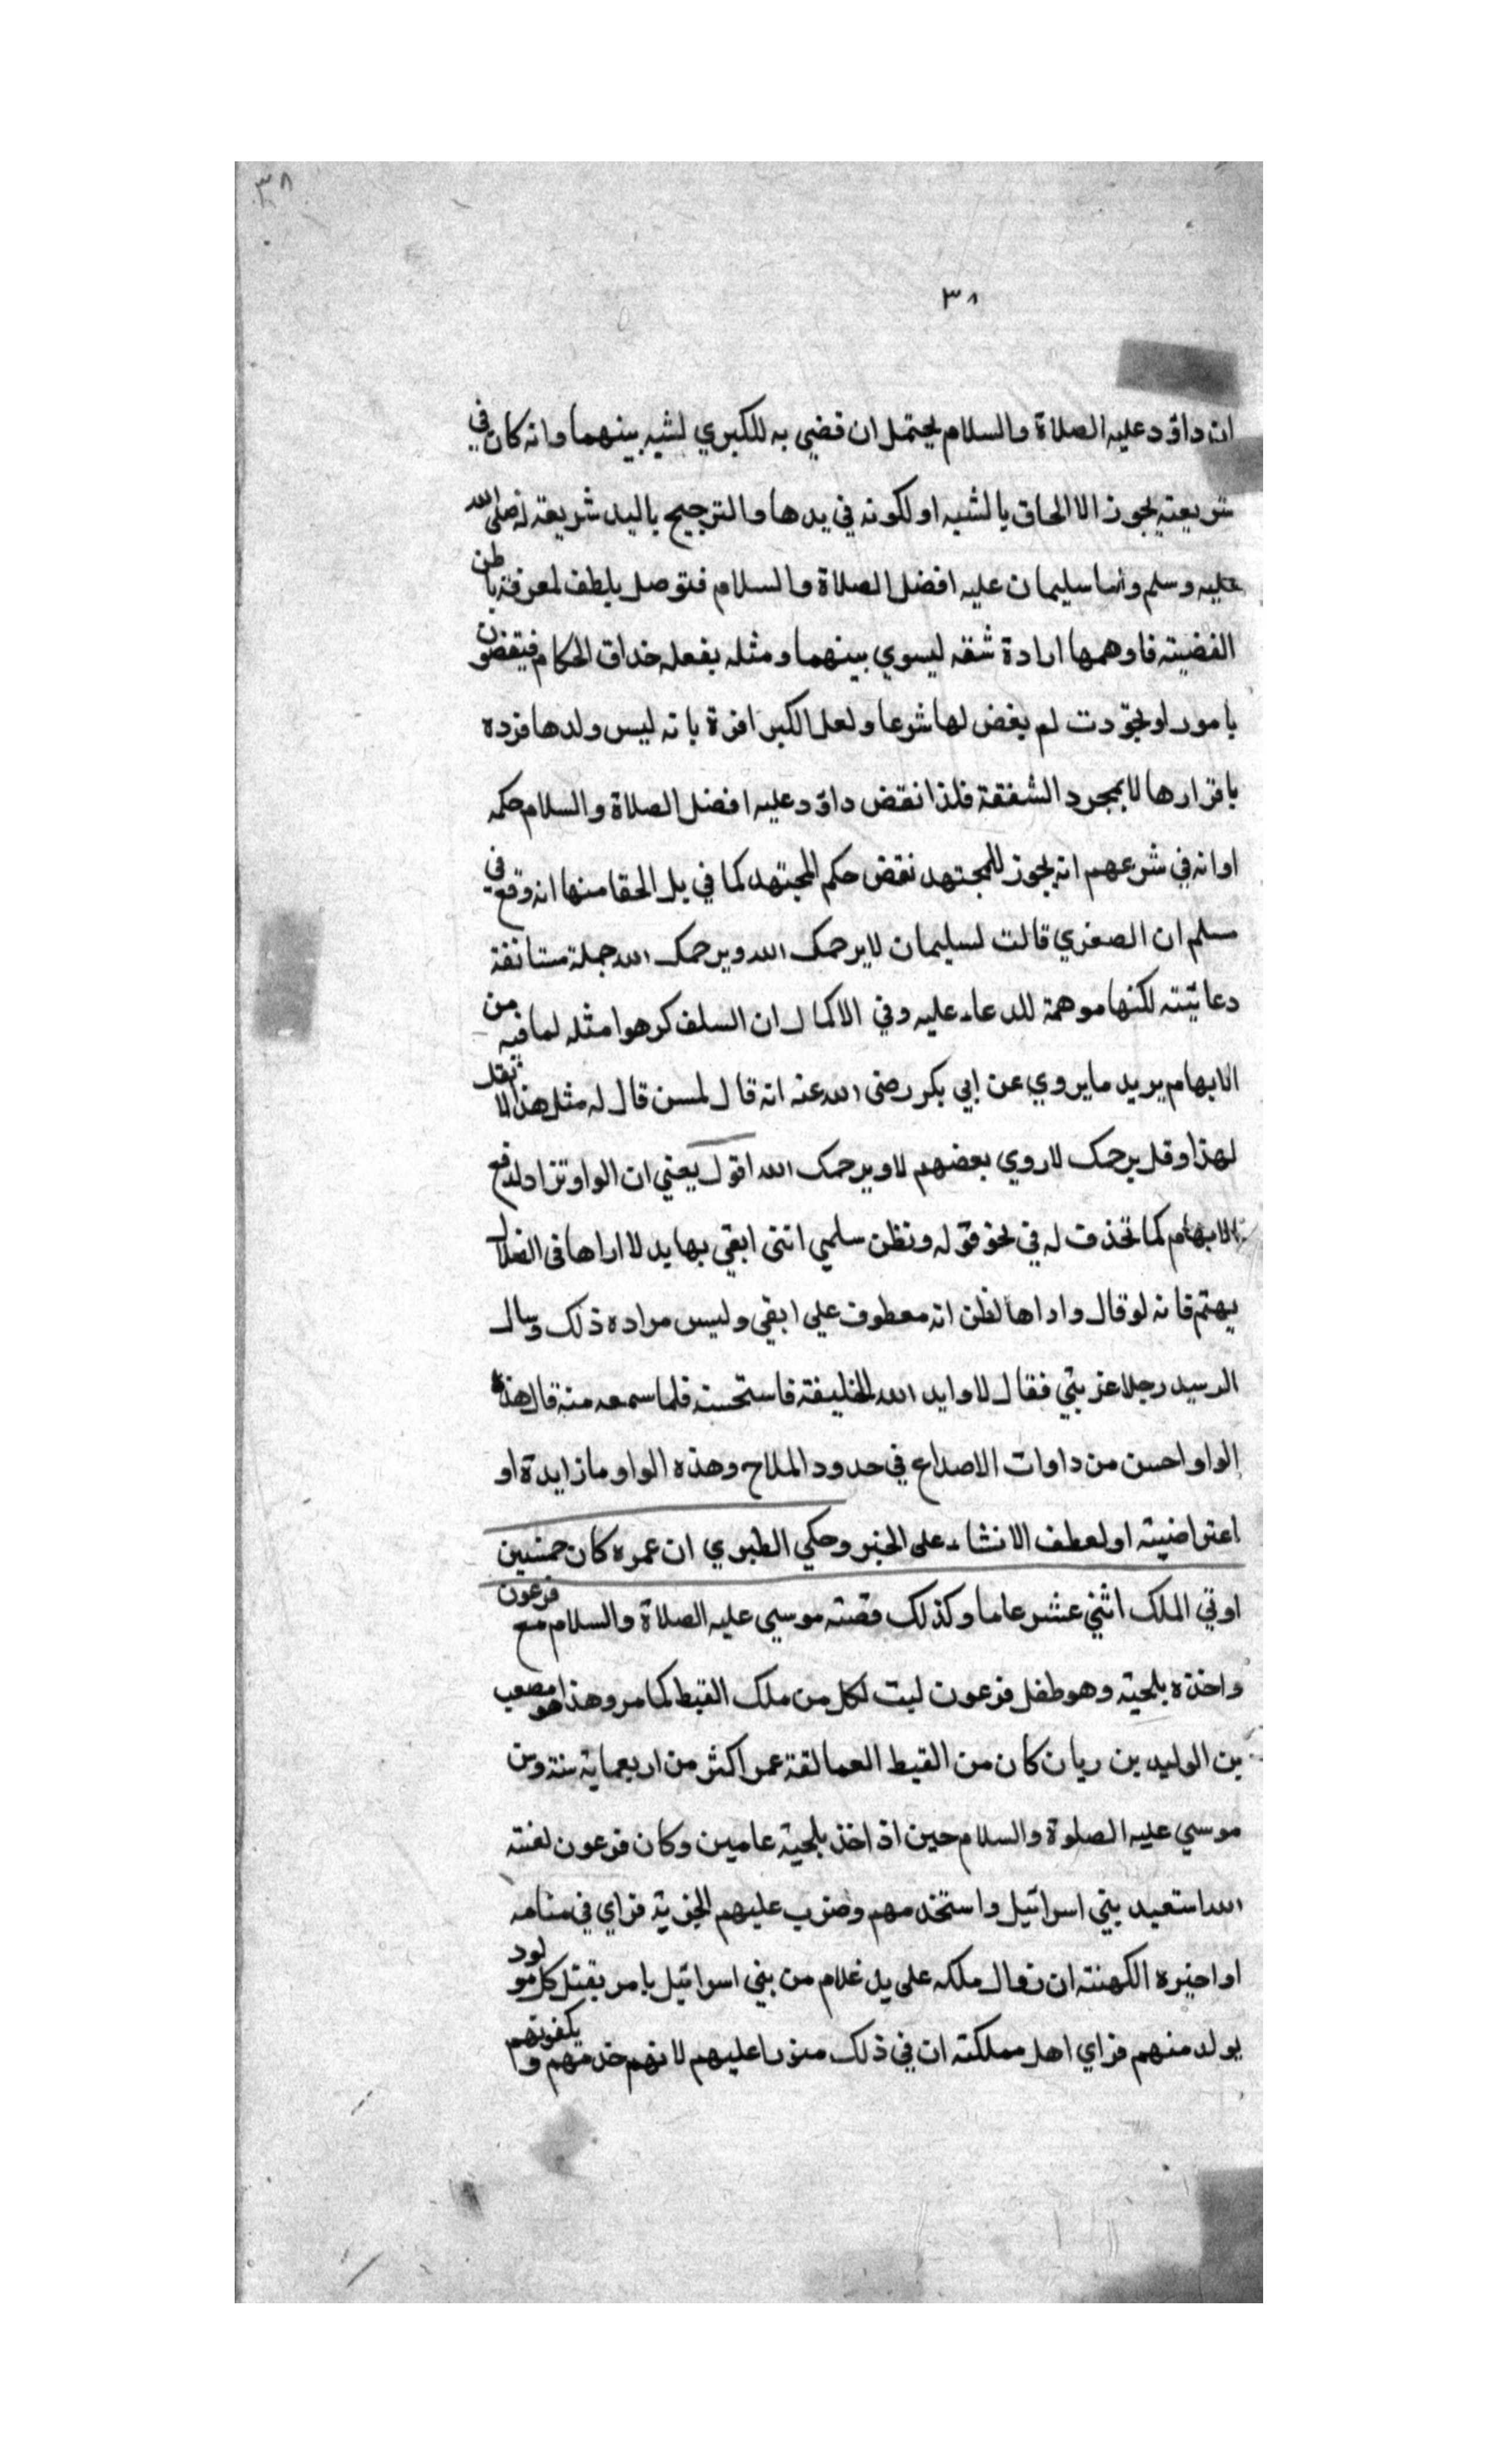 ٣٨
٣٨
ان داؤد عليه الصلاة والسلام يحتمل ان قضي به للكبري لشبه بينهما وانه كان في
شريعته يجوز الالحاق بالشبه او لكونه في يدها والترجيح باليد شريعة له صلى الله
عليه وسلم واما سليمان عليه افضل الصلاة والسلام فتوصل بلطف لمعرفة باطن
القضيته فاوهمها ارادة شقه ليسوي بينهما ومثله يفعله حذاق الحكام فيقضون
بامور لو تجوّدت لم يغض لها شرعا ولعل الكبر اقرة بانه ليس ولدها فرده
باقرارها لا بمجرد الشفقة فلذا نقض داؤد عليه افضل الصلاة والسلام حكمه
او انه في شرعهم انه يجوز للمجتهد نقض حكم المجتهد كما في يل الحقا منها انه وقع في
مسلم ان الصغري قالت لسليمان لا يرحمك الله ويرحمك الله جملة مستانفة
دعائيته لكنها موهمة للدعاء عليه وفي الاكمال ان السلف كرهوا مثله لما فيه من
الابهام يريد ما يروي عن ابي بكر رضى الله عنه انه قال لمسن قال له مثل هذا لا تقل
لهذا وقل يرحمك لا روي بعضهم لا ويرحمك الله اقول يعني ان الواو تزاد لدفع
الابهام كما تحذف له في نحو قوله ونظن سلمي انني ابقي بها يد لا اراها فى الضلال
يهتم فانه لو قال واراها لظن انه معطوف علي ابقي وليس مراده ذلك وسال
الرسيد رجلا عز بتي فقال لا وايد الله الخليفة فاستحسنه فلما سمعه منه قال هذه
الواو احسن من داوات الاصداع في حدود الملاح وهذه الواو ما زايدة او
اعتراضيته او لعطف الانشاء على الخبر وحكي الطبري ان عمره كان خمسين
اوتي الملك اثني عشر عاما وكذلك قصته موسي عليه الصلاة والسلام مع فرعون
واخذه بلحيته وهو طفل فرعون لبت لكل من ملك القبط كما مر وهذا هو مصعب
بن الوليد بن ريان كان من القيط العمالقة عمر اكثر من اربعماية سنة وسن
موسي عليه الصلوة والسلام حين اذ اخذ بلحية عامين وكان فرعون لعنته
الله استعيد بني اسرائيل واستخدمهم وضرب عليهم الجزية فراي في منامه
او اخبره الكهنته ان زوال ملكه على يد غلام من بني اسرائيل بامر بقتل كل مولود
يولد منهم فراي اهل مملكته ان في ذلك ضررا عليهم لانهم خدمتهم و يكفونهم